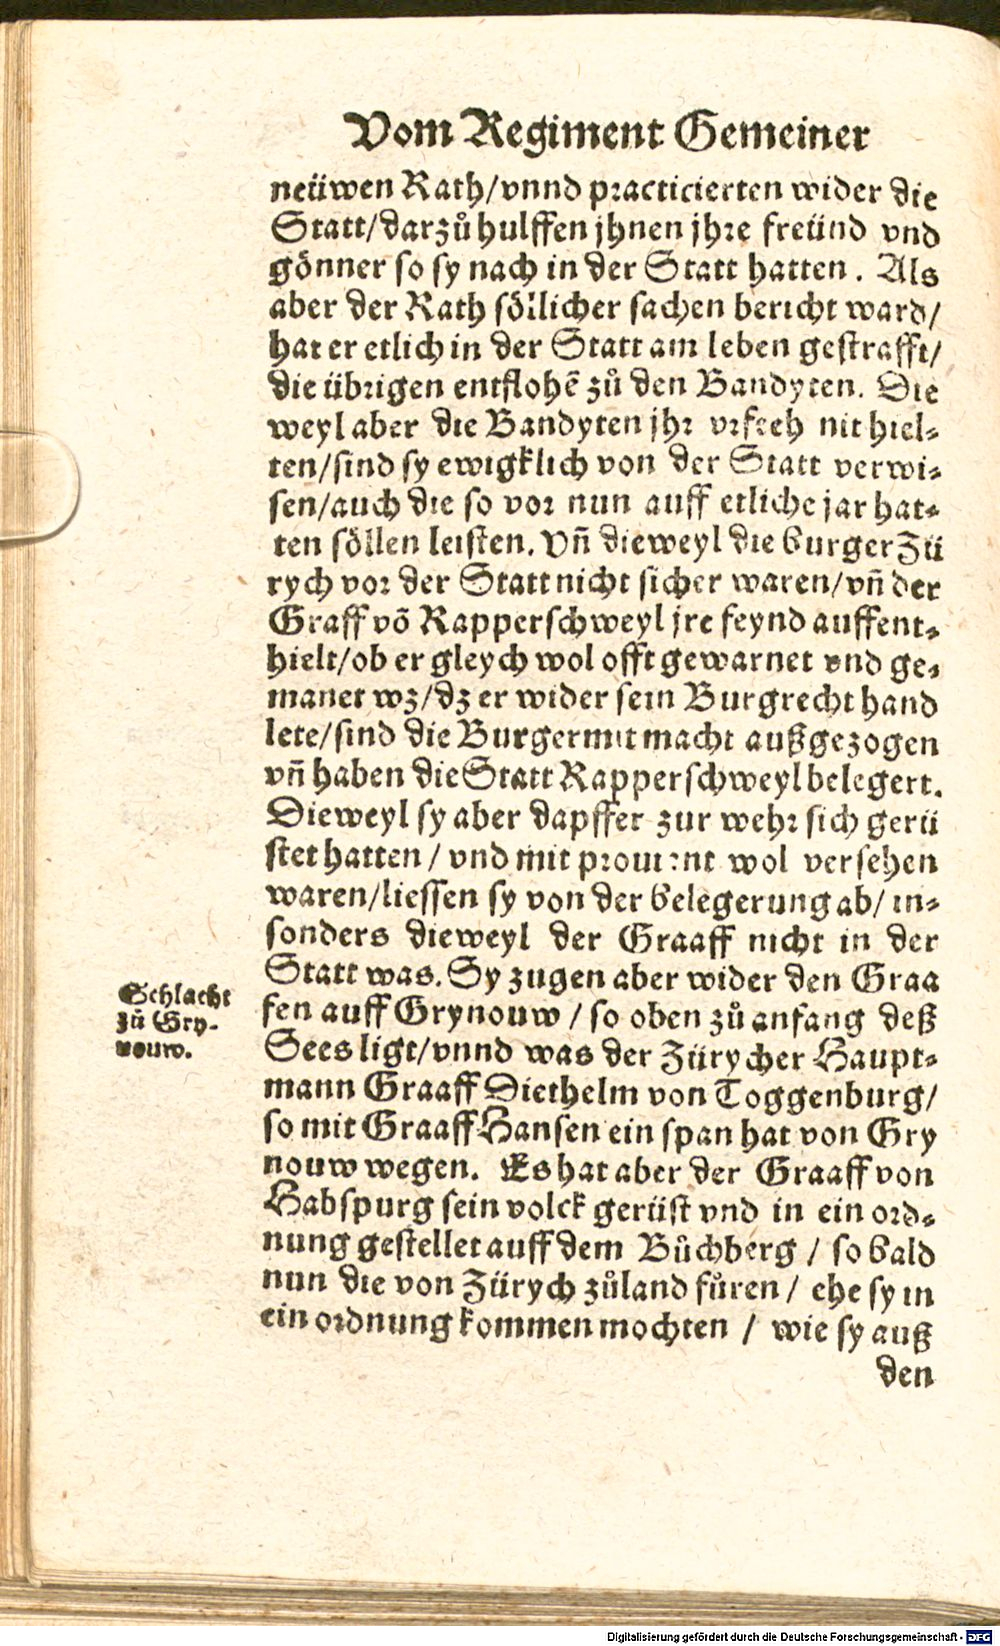 Vom Regiment Gemeiner
neüwen Rath/vnnd practicierten wider die
Statt/darzů hulffen jhnen jhre freünd vnd
gönner so sy nach in der Statt hatten. Als
aber der Rath söllicher sachen bericht ward/
hat er etlich in der Statt am leben gestrafft/
die übrigen entflohẽ zů den Bandyten. Die
weyl aber die Bandyten jhr vrfeeh nit hiel-
ten/sind sy ewigklich von der Statt verwi-
sen/auch die so vor nun auff etliche jar hat-
ten söllen leisten. Vñ dieweyl die burger Zü
rych vor der Statt nicht sicher waren/vñ der
Graff võ Rapperschweyl jre feynd auffent-
hielt/ob er gleych wol offt gewarnet vnd ge-
manet wz/dz er wider sein Burgrecht hand
lete/sind die Burger mit macht außgezogen
vñ haben die Statt Rapperschweyl belegert.
Dieweyl sy aber dapffer zur wehr sich gerü
stet hatten / vnd mit prouiant wol versehen
waren/liessen sy von der belegerung ab/ in-
sonders dieweyl der Graaff nicht in der
Statt was. Sy zugen aber wider den Graa
fen auff Grynouw / so oben zů anfang deß
Schlacht
zů Gry-
nouw.
Sees ligt/vnnd was der Zürycher Haupt-
mann Graaff Diethelm von Toggenburg/
so mit Graaff Hansen ein span hat von Gry
nouw wegen. Es hat aber der Graaff von
Habspurg sein volck gerüst vnd in ein ord-
nung gestellet auff dem Bůchberg / so bald
nun die von Zürych zůland fůren / ehe sy in
ein ordnung kommen mochten / wie sy auß
den
Digitalisierung gefördert durch die Deutsche Forschungsgemeinschaft - DFG